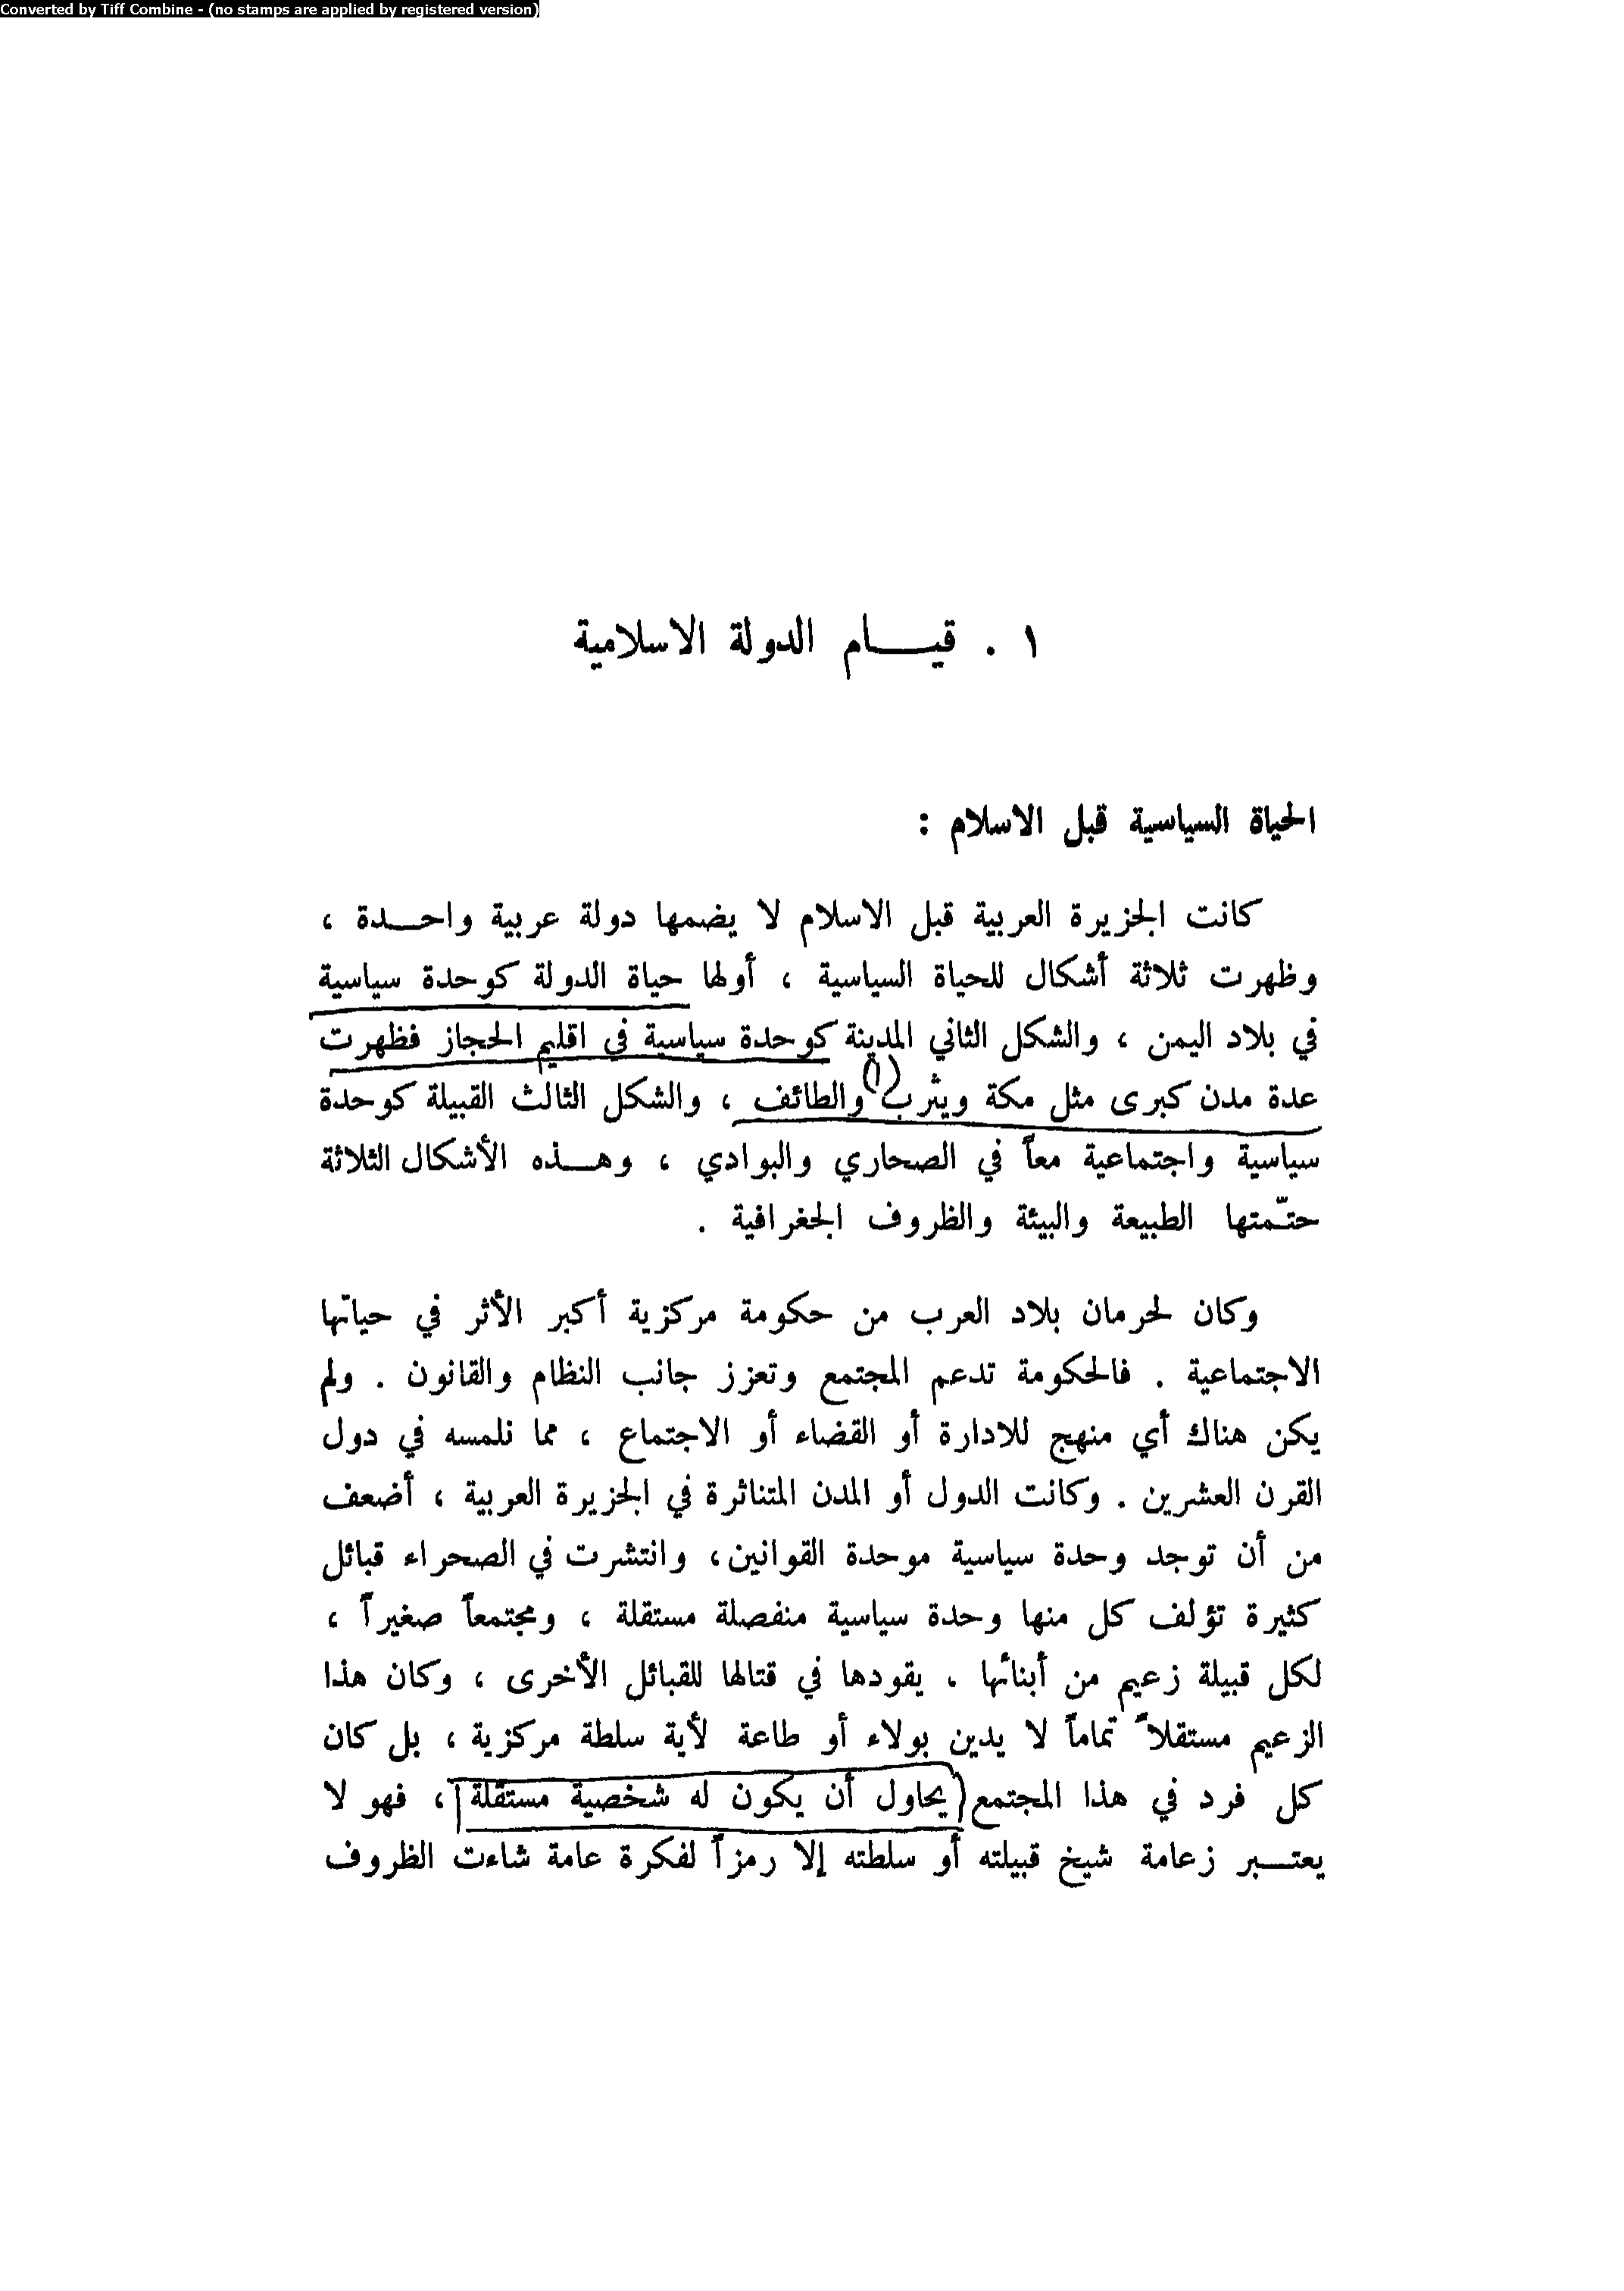 Converted by Tiff Combine - (no stamps are applied by registered version)
١ . قيـــام الدولة الاسلامية
الحياة السياسية قبل الاسلام :
كانت الجزيرة العربية قبل الاسلام لا يضمها دولة عربية واحـــدة ،
وظهرت ثلاثة أشكال للحياة السياسية ، أولها حياة الدولة كوحدة سياسية
في بلاد اليمن ، والشكل الثاني المدينة كوحدة سياسية في اقليم الحجاز فظهرت
عدة مدن كبرى مثل مكة ويثرب (١) والطائف ، والشكل الثالث القبيلة كوحدة
سياسية واجتماعية معاً في الصحاري والبوادي ، وهـــذه الأشكال الثلاثة
حتّمتها الطبيعة والبيئة والظروف الجغرافية .
وكان لحرمان بلاد العرب من حكومة مركزية أكبر الأثر في حياتها
الاجتماعية . فالحكومة تدعم المجتمع وتعزز جانب النظام والقانون . ولم
يكن هناك أي منهج للادارة أو القضاء أو الاجتماع ، مما نلمسه في دول
القرن العشرين . وكانت الدول أو المدن المتناثرة في الجزيرة العربية ، أضعف
من أن توجد وحدة سياسية موحدة القوانين، وانتشرت في الصحراء قبائل
كثيرة تؤلف كل منها وحدة سياسية منفصلة مستقلة ، ومجتمعاً صغيراً ،
لكل قبيلة زعيم من أبنائها ، يقودها في قتالها للقبائل الأخرى ، وكان هذا
الزعيم مستقلاً تماماً لا يدين بولاء أو طاعة لأية سلطة مركزية ، بل كان
كل فرد في هذا المجتمع (يحاول أن يكون له شخصية مستقلة) ، فهو لا
يعتـــبر زعامة شيخ قبيلته أو سلطته إلا رمزاً لفكرة عامة شاءت الظروف